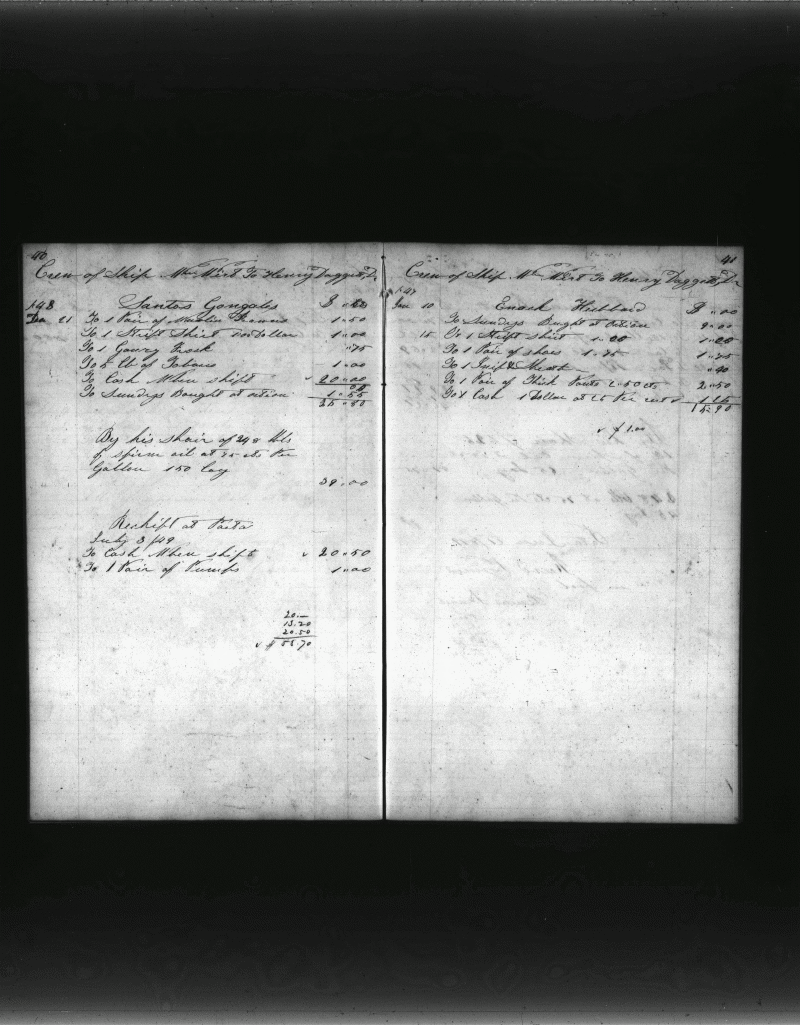 40
Crew of Ship Wm Wirt To Henry Daggett Dr
1848 Santos Gongales $ cts
Dec 21 To 1 Pair of Trouses 1"50
To 1 Stript Shirt one Dollar 1"00
To 1 Frock "75
To 5 lb of Tobaco 1"00
To Cash When shipt 20"00
To Sundrys Bought at oction 1"55
25"80
By his shair of 248 bls
of spirm oil at cts Per
Gallon 150 lay
39"00
Reshipt at Paita
July 3/49
To Cash When shipt 20"50
To 1 Pair of Pumps 1"00
20.—
15.20
20.50
$ 55.70
41
Crew of Ship Wm Wirt To Henry Daggett Dr
Jan 10 Enock Hubbard $ "00
To Sundrys Bught at oction 9"00
15 To 1 Stript shirt 1"00 1"00
To 1 Pair of shoes 1"75 1"75
To 1 & Sheath "40
To 1 Pair of Thick Pants 2"50 cts 2"50
To Cash 1 Dollar at 25 Per cent 1.25
15"90
$1.00